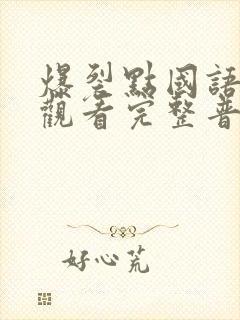 爆裂點國語
觀看完整普
好心荒